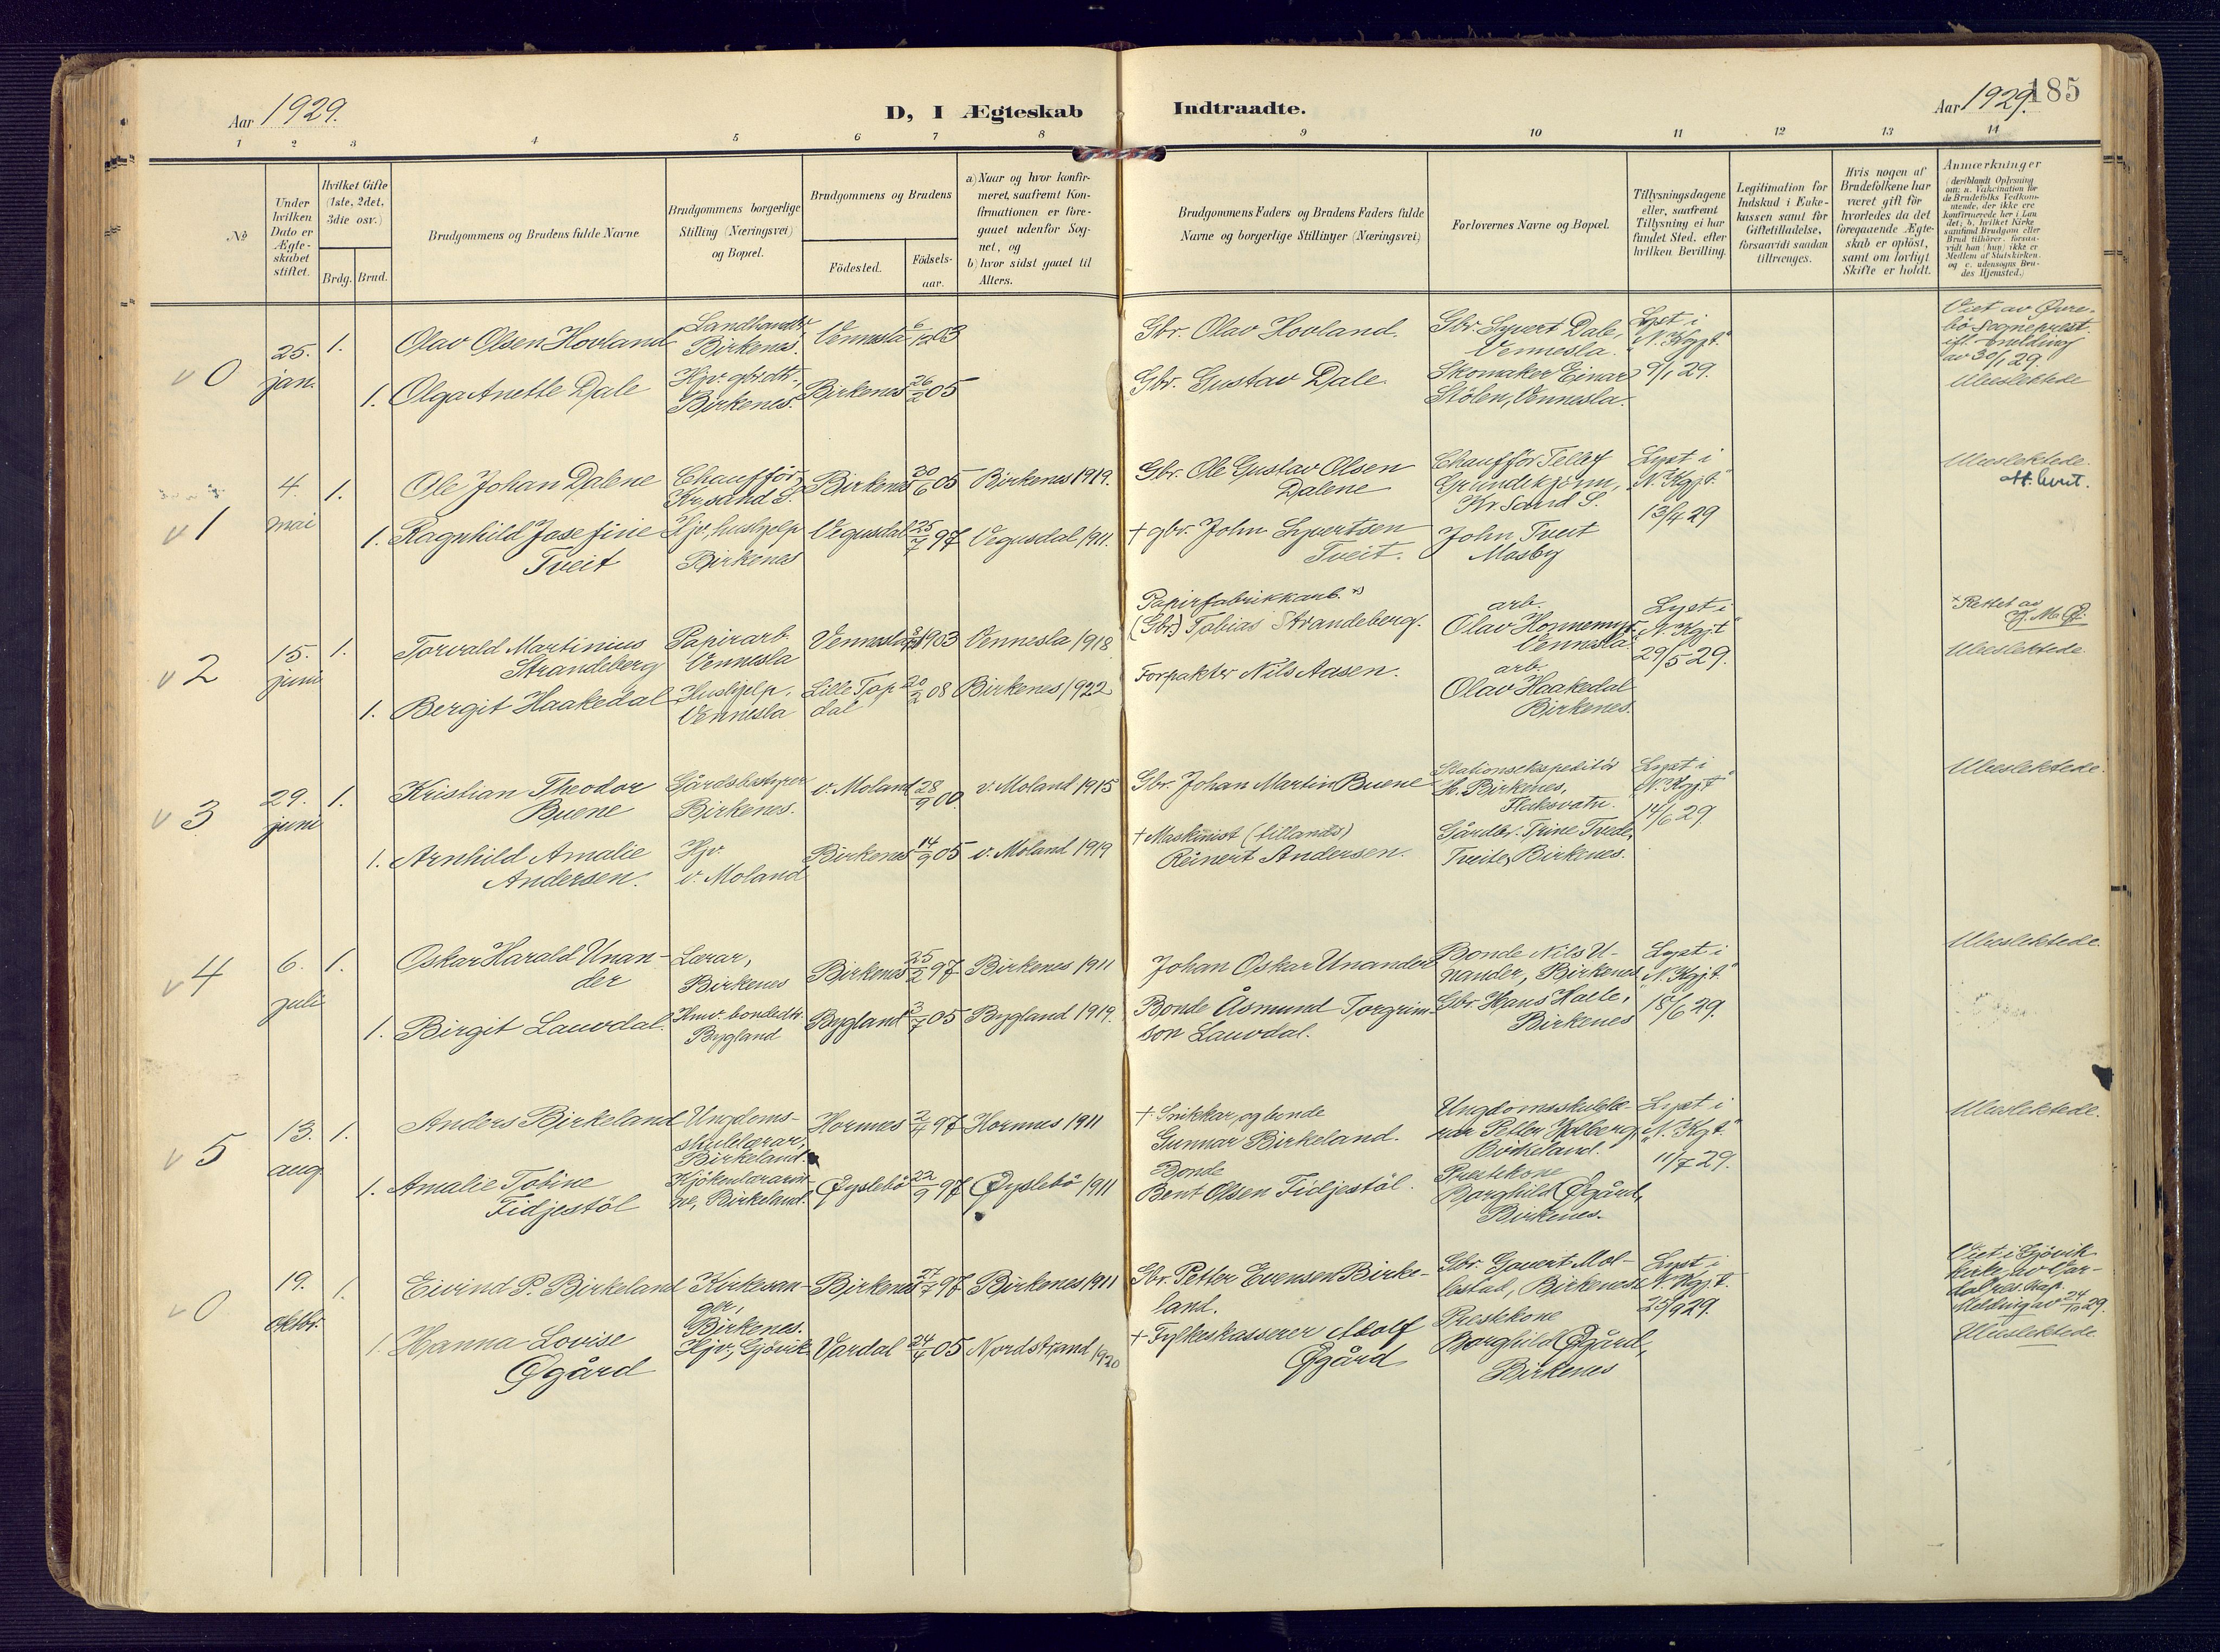 Aar 1929.
D, I Ægteskab Indtraadte.
Aar 1929.
185
1 2 3 4 5 6 7 8 9 10 11 12 13 14
No
Under hvilken Dato er Ægteskabet stiftet.
Hvilket Gifte (1ste, 2det, 3die osv.)
Brdg. Brud.
Brudgommens og Brudens fulde Navne
Brudgommens borgerlige Stilling (Næringsvei) og Bopæl.
Brudgommens og Brudens
Födested.
Födsels-aar.
a) Naar og hvor konfirmeret, saafremt Konfirmationen er foregaaet udenfor Sognet, og
b) hvor sidst gaaet til Alters.
Brudgommens Faders og Brudens Faders fulde Navne og borgerlige Stillinger (Næringsvei)
Forlovernes Navne og Bopæl.
Tillysningsdagene eller, saafremt Tillysning ei har fundet Sted, efter hvilken Bevilling.
Legitimation for Indskud i Enkekassen samt for Giftetilladelse, forsaavidt saadan tiltrænges.
Hvis nogen af Brudefolkene har været gift før hvorledes da det foregaaende Ægteskab er oplöst, samt om lovligt Skifte er holdt.
Anmærkninger
(deriblandt Oplysning om: a. Vakcination for de Brudefolks Vedkommende, der ikke ere konfirmerede her i Landet; b. hvilket Kirkesamfund Brudgom eller Brud tilhörer, forsaavidt han (hun) ikke er Medlem af Statskirken, og c. udensogns Brudes Hjemsted.)
v 0
25. jan.
1. Olav Olsen Hovland
Landhandler Birkenes.
Vennesla 6/12 03
Gbr. Olav Hovland.
Gbr. Syvert Dale, Vennesla.
Lyst i "N. Kgjt." 9/1 29.
Viet av Øvrebö sogneprest ifl. melding av 30/1 29.
1. Olga Anette Dale
Hjv. gbrdtr., Birkenes.
Birkenes 26/2 05
Gbr. Gustav Dale.
Skomaker Einar Stölen, Vennesla.
Ubeslektede
v 1
4. mai
1. Ole Johan Dalene
Chaufför, Kr.sand S.
Birkenes 20/6 05
Birkenes 1919.
Gbr. Ole Gustav Olsen Dalene
Chaufför Tellef Grundekjönn, Kr.Sand S.
Lyst i "N. Kgjt." 13/4 29
Ubeslektede.
1. Ragnhild Josefine Tveit
Hjv., hushjelp Birkenes
Vegusdal 25/7 97
Vegusdal 1911.
+ gbr. John Syvertsen Tveit.
John Tveit Mosby
v 2
15. juni
1. Torvald Martinius Strandeberg
Papirarb. Vennesla
Vennesla 1903
Vennesla 1918
Papirfabrikkarb. x)
(Gbr.) Tobias Strandeberg.
arb. Olav Honnemyr, Vennesla.
Lyst i "N. Kgjt" 29/5 29.
x Rettet av
Ubeslektede
1. Bergit Haakedal
Hushjelp, Vennesla
Lille Topdal 20/2 08
Birkenes 1922
Forpakter Nils Aasen.
arb. Olav Haakedal Birkenes.
v 3
29. juni
1. Kristian Theodor Buene
Gårdsbestyrer Birkenes.
v. Moland 28/9 00
v. Moland 1915
Gbr. Johan Martin Buene
Stationsekspeditör H. Birkenes, Flaksvatn.
Lyst i "N. Kgjt" 14/6 29
Ubeslektede.
1. Arnhild Amalie Andersen.
Hjv. v. Moland
Birkenes 14/9 05
v. Moland 1919
+ Maskinist (tillands) Reinert Andersen.
Gårdbr. Trine Tvede, Tveite, Birkenes.
v 4
6. juli
1. Oskar Harald Unander
Lærar, Birkenes
Birkenes 25/2 97
Birkenes 1911
Johan Oskar Unander
Bonde Nils Unander, Birkenes
Lyst i "N. Kgjt." 18/6 29.
Ubeslektede.
1. Birgit Lauvdal.
Hmv. bondedtr. Bygland
Bygland 3/7 05
Bygland 1919.
Bonde Åsmund Torgrimson Lauvdal.
Gbr. Hans Halle, Birkenes
v 5
13. aug
1. Anders Birkeland
Ungdomsskulelærar, Birkeland.
Hornnes 2/4 97
Hornnes 1911
+ Snikkar og bonde Gunnar Birkeland.
Ungdomsskulelærar Petter Holberg, Birkeland.
Lyst i "N. Kgt." 11/7 29.
Ubeslektede.
1. Amalie Tobine Fidjestöl
Kjökenlærarinne, Birkeland.
Øyslebö 22/9 97
Øyslebö 1911
Bonde Bent Olsen Fidjestöl.
Prestekone Borghild Øgård, Birkenes.
v 0
19. oktbr.
1. Eivind P. Birkeland
Kirkesanger, Birkenes.
Birkenes 27/7 97
Birkenes 1911
Gbr. Petter Evensen Birkeland.
Gbr. Gauert Mollestad, Birkenes
Lyst i "N. Kgjt." 25/9 29.
Viet i Gjövik kirke av Vardal res. kap. Melding av 24/10 29.
1. Hanna Lovise Øgård
Hjv., Gjövik
Vardal 24/4 05
Nordstrand 1920
+ Fylkeskasserer Adolf Øgård
Prestekone Borghild Øgård, Birkenes
Ubeslektede